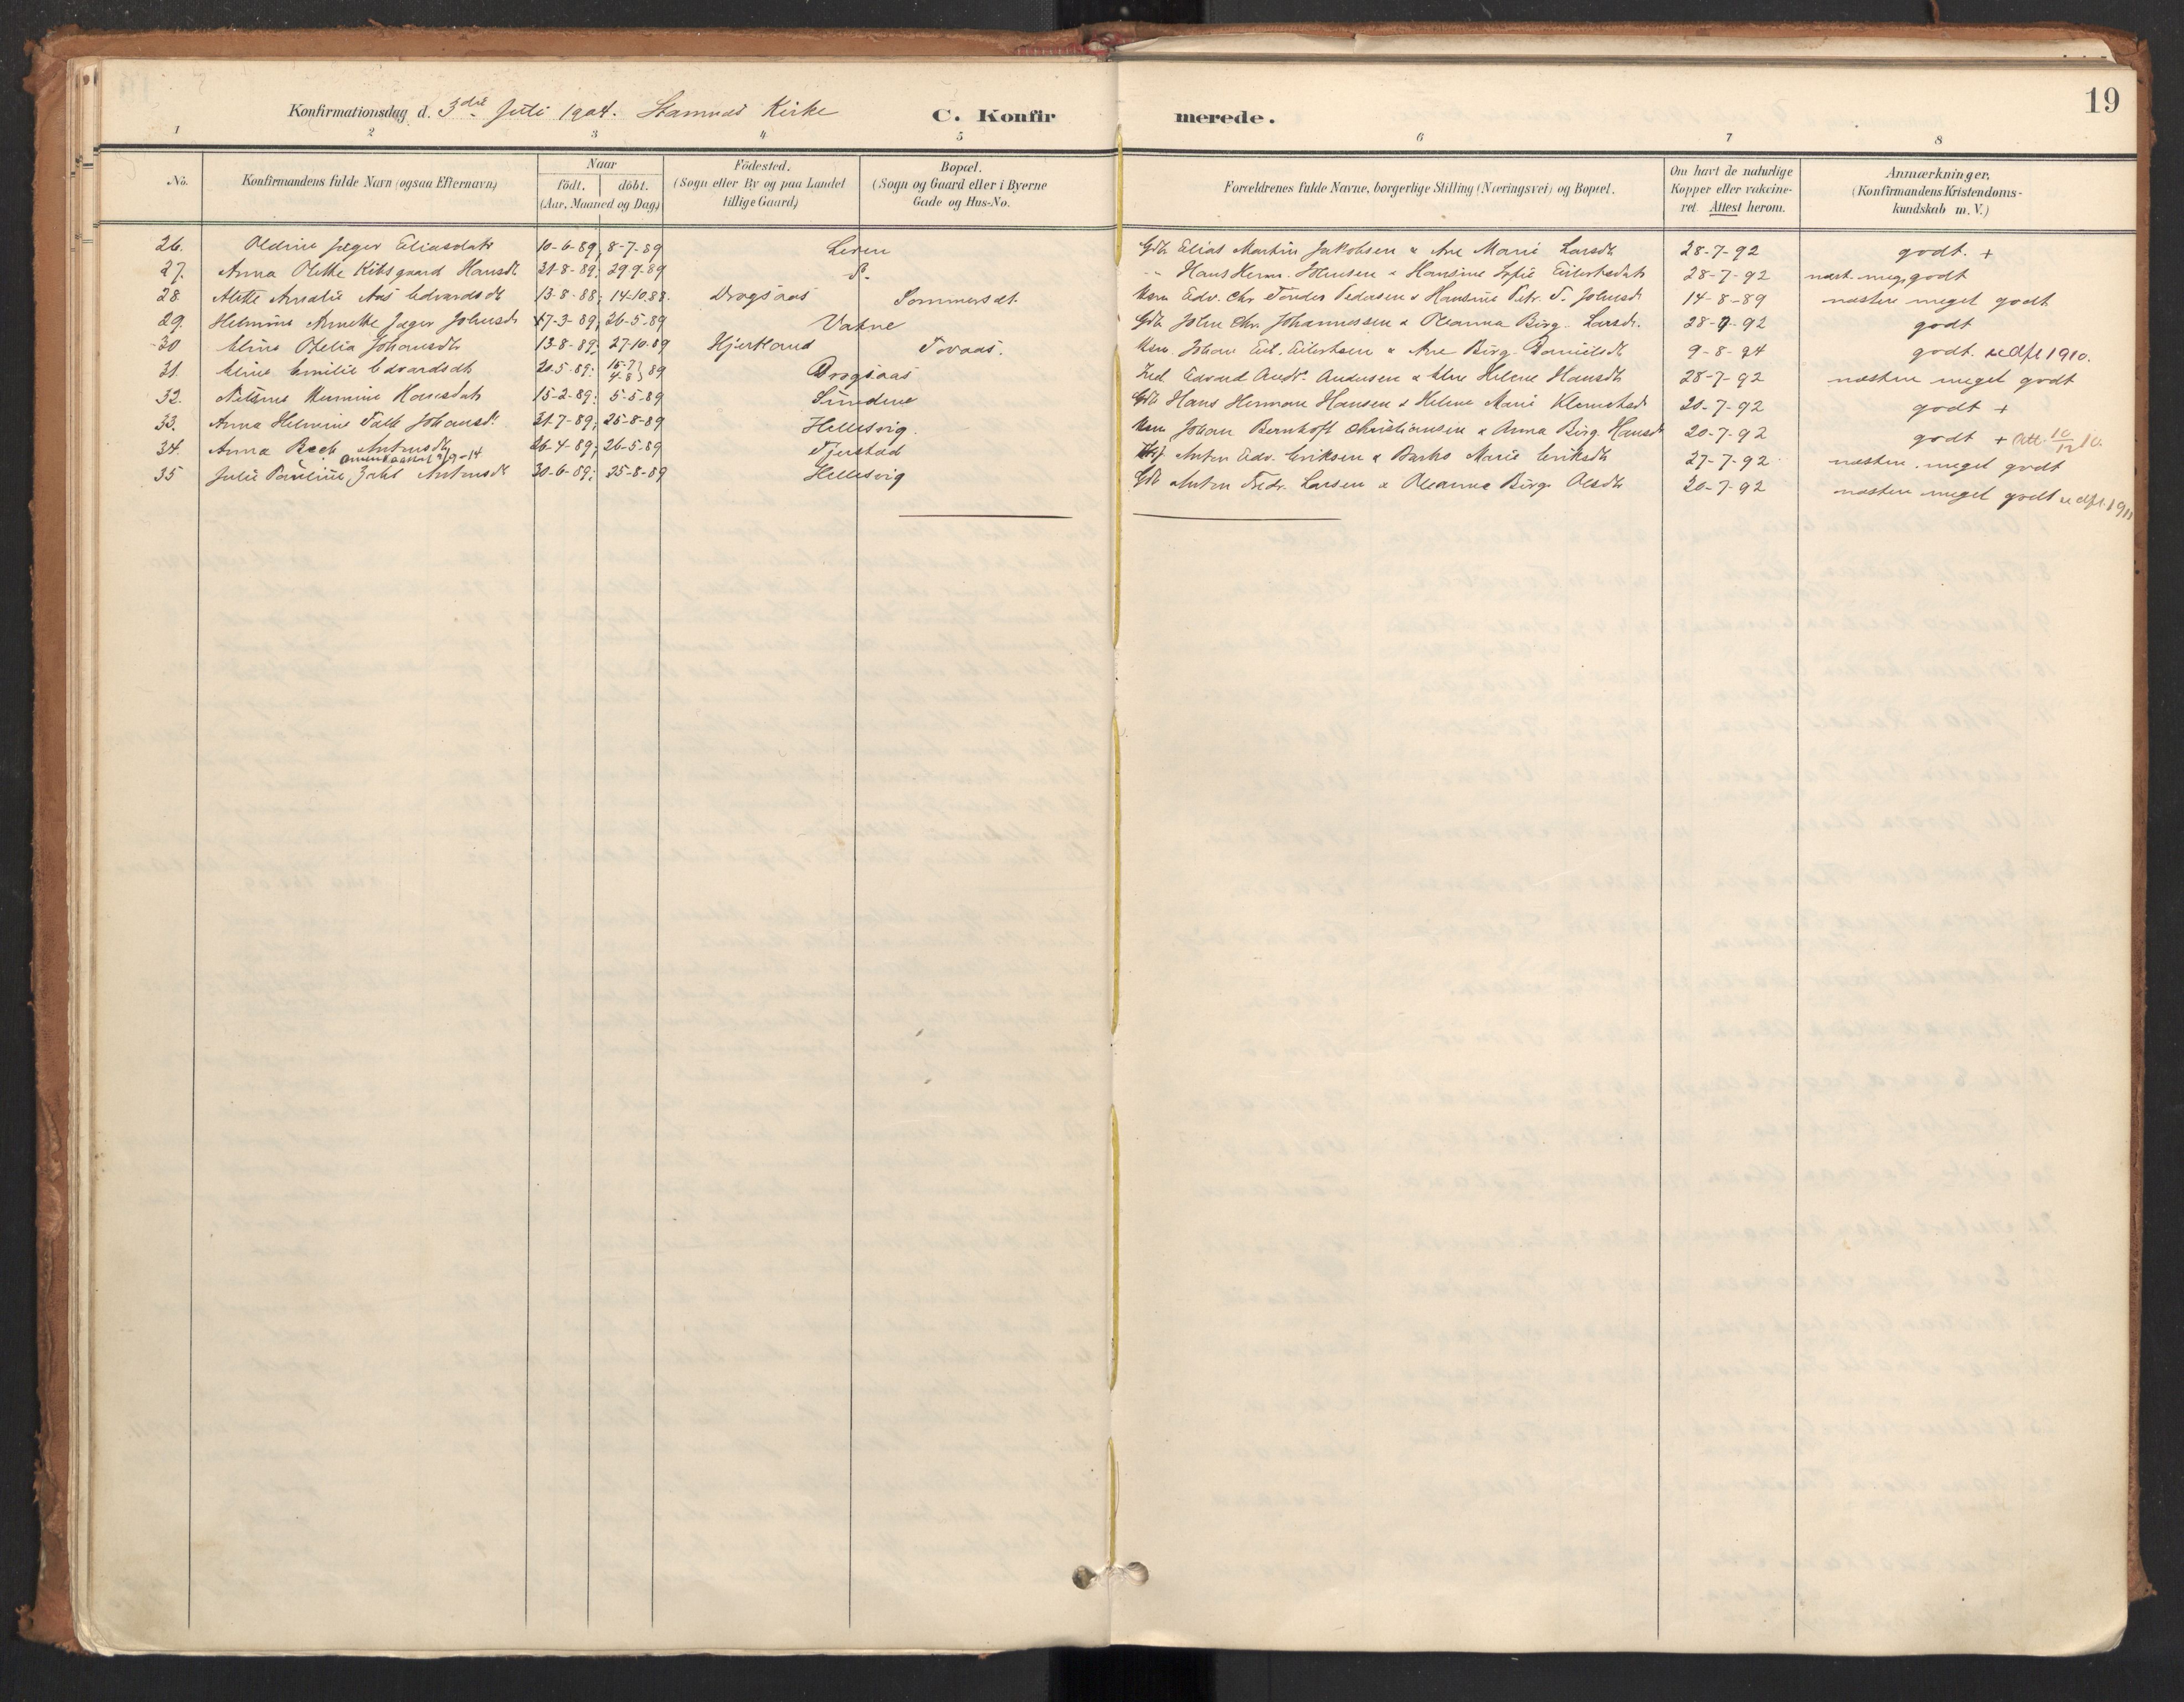 Konfirmationsdag d. 3die Juli 1904. Stamnes Kirke C. Konfirmerede. 19
1 2 3 4 5 6 7 8
No. Konfirmandens fulde Navn (ogsaa Efternavn) Naar födt. döbt. (Aar, Maaned og Dag) Födested. (Sogn eller By og paa Landet tillige Gaard) Bopæl. (Sogn og Gaard eller i Byerne Gade og Hus-No. Forældrenes fulde Navne, borgerlige Stilling (Næringsvei) og Bopæl. Om havt de naturlige Kopper eller vakcineret. Attest herom. Anmærkninger. (Konfirmandens Kristendomskundskab m. V.)
26. Oldine Jæger Eliasdatr 10-6-89, 8-7-89 Leren Gdb Elias Martin Jakobsen & Ane Marie Larsdr 28-7-92 godt. +
27. Anna Olette Hansdr 21-8-89; 29-9-89 " Hans Herm. Johnsen & Hansine Sofie Eilertsdatr 28-7-92 næst. meg. godt
28. Alette Amalie Aas Edvardsdr 13-8-88; 14-10.88. Dragsaas Sommerset. Edv. Chr Tønder Pedersen & Hansine Petr. T. Johnsdr 14-8-89 næsten meget godt
29. Helmine Annette Jæger Johnsdr 17-3-89; 26-5-89 Vatne Gdb John Chr. Johannessen & Oleanna Birg. Larsdr. 28-7-92 godt
30 Eline Ofelia Johansdtr 13-8-89; 27-10.89 Tovaas. Johan Eil. Eilertsen & Ane Birg. Danielsdtr 9-8-94 godt. se dpt 1910.
31. Eline Emilie Edvardsdtr 20-5-89; 15-7 4-8 } 89 Dragsaas Edvard Andr. Andersen & Helene Hansdtr 28-7-92 næsten meget godt
32. Hermine Hansdatr 15-2-89; 5-5-89 Sundene Gdb Hans Herman Hansen & Helene Marie 20-7-92 godt +
33. Anna Helmine Falk Johansdr 21-7-89; 25-8-89 Hellesvig. Johan Bernhoft Christiansen & Anna Birg. Hansdr 20-7-92 godt + Att. 10/12 10.
34. Anna Bech Antonsdtr 26-4-89; 26-5-89 Fjerstad Anton Edv. Eriksen & Marie Eriksdtr 27-7-92 næsten meget godt
35 Julie Pauline Zahl Antonsdtr 30-6-89; 25-8-89 Hellesvig Gdb Anton Fedr. Larsen & Oleanna Birg. Olsdtr 20-7-92 næsten meget godt se dpt. 1911